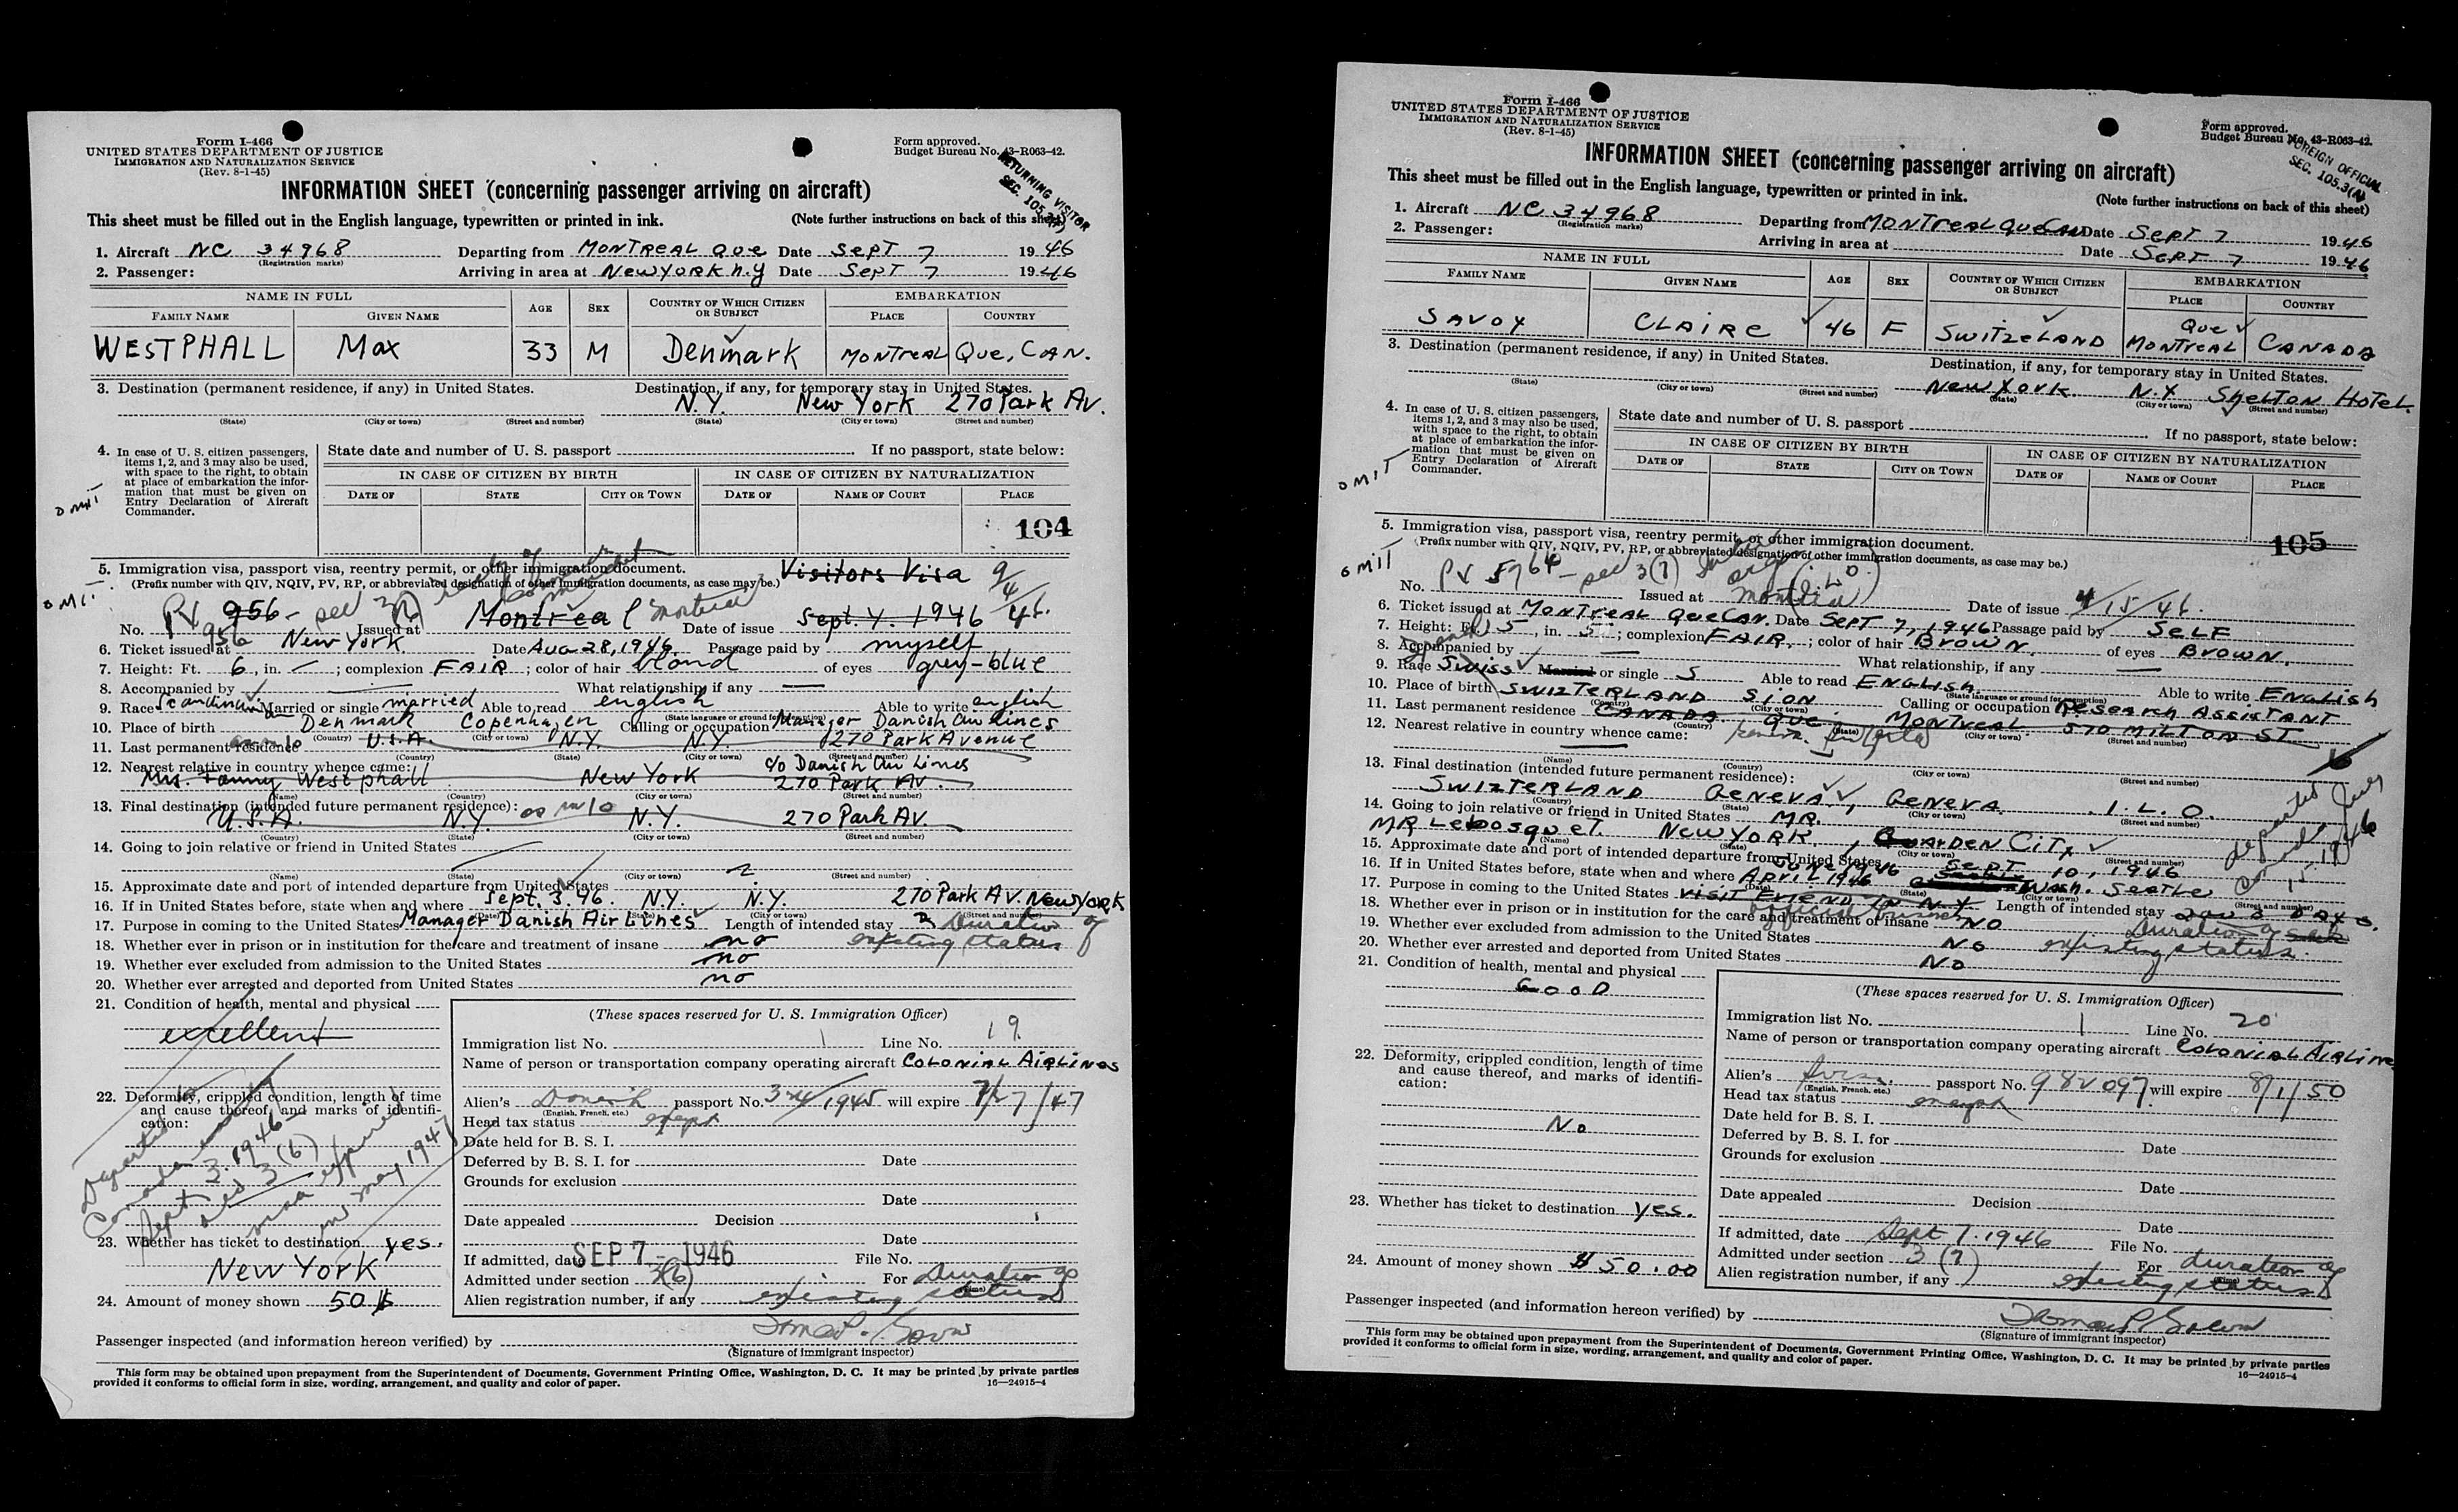 Form I-466
UNITED STATES DEPARTMENT OF JUSTICE
IMMIGRATION AND NATURALIZATION SERVICE
(Rev. 8-1-45)
Form approved.
Budget Bureau No. 43-R063-42.
RETURNING VISITOR
SEC. 105.3
INFORMATION SHEET (concerning passenger arriving on aircraft)
This sheet must be filled out in the English language, typewritten or printed in ink. (Note further instructions on back of this sheet)
1. Aircraft NC 34968 Departing from MONTREAL QUE Date SEPT 7 1946
(Registration marks)
2. Passenger: Arriving in area at NEW YORK N.Y Date SEPT 7 1946
NAME IN FULL AGE SEX COUNTRY OF WHICH CITIZEN OR SUBJECT EMBARKATION
FAMILY NAME GIVEN NAME PLACE COUNTRY
WESTPHALL Max 33 M Denmark MONTREAL Que, CAN.
3. Destination (permanent residence, if any) in United States. Destination, if any, for temporary stay in United States.
N.Y. New York 270 Park Av.
(State) (City or town) (Street and number) (State) (City or town) (Street and number)
4. In case of U. S. citizen passengers, items 1, 2, and 3 may also be used, with space to the right, to obtain at place of embarkation the information that must be given on Entry Declaration of Aircraft Commander.
State date and number of U. S. passport If no passport, state below:
IN CASE OF CITIZEN BY BIRTH IN CASE OF CITIZEN BY NATURALIZATION
DATE OF STATE CITY OR TOWN DATE OF NAME OF COURT PLACE
OMIT
104
5. Immigration visa, passport visa, reentry permit, or other immigration document. Visitors Visa
(Prefix number with QIV, NQIV, PV, RP, or abbreviated designation of other immigration documents, as case may be.)
OMIT
No. PV 956 - sec 3(6) 956 Issued at Montreal Montreal Date of issue Sept. 4. 1946 9/4/46.
6. Ticket issued at New York Date Aug 28, 1946 Passage paid by myself
7. Height: Ft. 6, in. –; complexion FAIR; color of hair blond of eyes grey-blue
8. Accompanied by — What relationship, if any —
9. Race Scandinavian Married or single married Able to read english Able to write english
(State language or ground for exemption)
10. Place of birth Denmark Copenhagen Calling or occupation Manager Danish Air Lines
(Country) (City or town)
11. Last permanent residence U.S.A. N.Y. N.Y. 270 Park Avenue
(Country) (State) (City or town) (Street and number)
12. Nearest relative in country whence came: c/o Danish Air Lines
Mrs. Fanny Westphall New York 270 Park AV.
(Name) (Country) (City or town) (Street and number)
13. Final destination (intended future permanent residence): as no 10
U.S.A. N.Y. N.Y. 270 Park AV.
(Country) (State) (City or town) (Street and number)
14. Going to join relative or friend in United States
(Name) (State) (City or town) (Street and number)
15. Approximate date and port of intended departure from United States
16. If in United States before, state when and where Sept. 3. 46. N.Y. N.Y. 270 Park AV. New York
(Date) (State) (City or town) (Street and number)
17. Purpose in coming to the United States Manager Danish Air Lines Length of intended stay Duration of
18. Whether ever in prison or in institution for the care and treatment of insane no existing status
19. Whether ever excluded from admission to the United States no
20. Whether ever arrested and deported from United States no
21. Condition of health, mental and physical
excellent
22. Deformity, crippled condition, length of time and cause thereof, and marks of identification:
Departed
Sept 3. 1946
3(6)
visa expired
in may 1947
23. Whether has ticket to destination yes.
New York
24. Amount of money shown 50 $
(These spaces reserved for U. S. Immigration Officer)
Immigration list No. 1 Line No. 19
Name of person or transportation company operating aircraft COLONIAL AIRLINES
Alien's Danish passport No. 324/1945 will expire 7/27/47
(English, French, etc.)
Head tax status exempt
Date held for B. S. I.
Deferred by B. S. I. for Date
Grounds for exclusion
Date
Date appealed Decision
Date
If admitted, date SEP 7 - 1946 File No.
Admitted under section 3(6) For Duration of
(Time)
Alien registration number, if any existing status
Passenger inspected (and information hereon verified) by
(Signature of immigrant inspector)
This form may be obtained upon prepayment from the Superintendent of Documents, Government Printing Office, Washington, D. C. It may be printed by private parties
provided it conforms to official form in size, wording, arrangement, and quality and color of paper. 16—24915-4
Form I-466
UNITED STATES DEPARTMENT OF JUSTICE
IMMIGRATION AND NATURALIZATION SERVICE
(Rev. 8-1-45)
Form approved.
Budget Bureau No. 43-R063-42.
FOREIGN OFFICIAL
SEC. 105.3(A)
INFORMATION SHEET (concerning passenger arriving on aircraft)
This sheet must be filled out in the English language, typewritten or printed in ink. (Note further instructions on back of this sheet)
1. Aircraft NC 34968 Departing from MONTREAL QUE CAN Date SEPT 7 1946
(Registration marks)
2. Passenger: Arriving in area at Date SEPT 7 1946
NAME IN FULL AGE SEX COUNTRY OF WHICH CITIZEN OR SUBJECT EMBARKATION
FAMILY NAME GIVEN NAME PLACE COUNTRY
SAVOY CLAIRE 46 F SWITZELAND QUE MONTREAL CANADA
3. Destination (permanent residence, if any) in United States. Destination, if any, for temporary stay in United States.
NEW YORK. N.Y SHELTON HOTEL
(State) (City or town) (Street and number) (State) (City or town) (Street and number)
4. In case of U. S. citizen passengers, items 1, 2, and 3 may also be used, with space to the right, to obtain at place of embarkation the information that must be given on Entry Declaration of Aircraft Commander.
State date and number of U. S. passport If no passport, state below:
IN CASE OF CITIZEN BY BIRTH IN CASE OF CITIZEN BY NATURALIZATION
DATE OF STATE CITY OR TOWN DATE OF NAME OF COURT PLACE
OMIT
105
5. Immigration visa, passport visa, reentry permit, or other immigration document.
(Prefix number with QIV, NQIV, PV, RP, or abbreviated designation of other immigration documents, as case may be.)
OMIT
No. PV 5764 - sec 3(7) (I.L.O.) Issued at Montreal Date of issue 4/15/46.
6. Ticket issued at MONTREAL QUE CAN. Date SEPT 7, 1946 Passage paid by SELF
7. Height: Ft. 5, in. 5; complexion FAIR; color of hair BROWN. of eyes BROWN.
8. Accompanied by — What relationship, if any —
9. Race SWISS Married or single S Able to read ENGLISH. Able to write ENGLISH
(State language or ground for exemption)
10. Place of birth SWIZTERLAND SION Calling or occupation RESEARCH ASSISTANT
(Country) (City or town)
11. Last permanent residence CANADA QUE. MONTREAL 570 MILTON ST.
(Country) (State) (City or town) (Street and number)
12. Nearest relative in country whence came:
(Name) (Country) (City or town) (Street and number)
13. Final destination (intended future permanent residence):
SWIZTERLAND GENEVA, GENEVA. I.L.O.
(Country) (State) (City or town) (Street and number)
14. Going to join relative or friend in United States MR.
MR LEBOSQUET. NEW YORK, GARDEN CITY
(Name) (State) (City or town) (Street and number)
15. Approximate date and port of intended departure from United States SEPT 10, 1946
16. If in United States before, state when and where JUNE 1946 APRIL 1946 Wash. SEATLE
(Date) (State) (City or town) (Street and number)
17. Purpose in coming to the United States VISIT FRIEND IN N.Y Length of intended stay 2 OR 3 DAYS.
18. Whether ever in prison or in institution for the care and treatment of insane NO Duration of
19. Whether ever excluded from admission to the United States NO existing status.
20. Whether ever arrested and deported from United States NO
departed
Canada July
15. 1946
21. Condition of health, mental and physical
GOOD
22. Deformity, crippled condition, length of time and cause thereof, and marks of identification:
No
23. Whether has ticket to destination yes.
24. Amount of money shown $ 50.00
(These spaces reserved for U. S. Immigration Officer)
Immigration list No. 1 Line No. 20
Name of person or transportation company operating aircraft COLONIAL AIRLINE
Alien's Swiss passport No. 982097 will expire 8/1/50
(English, French, etc.)
Head tax status exempt
Date held for B. S. I.
Deferred by B. S. I. for Date
Grounds for exclusion
Date
Date appealed Decision
Date
If admitted, date Sept 7. 1946 File No.
Admitted under section 3(7) For duration of
(Time)
Alien registration number, if any existing status
Passenger inspected (and information hereon verified) by
(Signature of immigrant inspector)
This form may be obtained upon prepayment from the Superintendent of Documents, Government Printing Office, Washington, D. C. It may be printed by private parties
provided it conforms to official form in size, wording, arrangement, and quality and color of paper. 16—24915-4